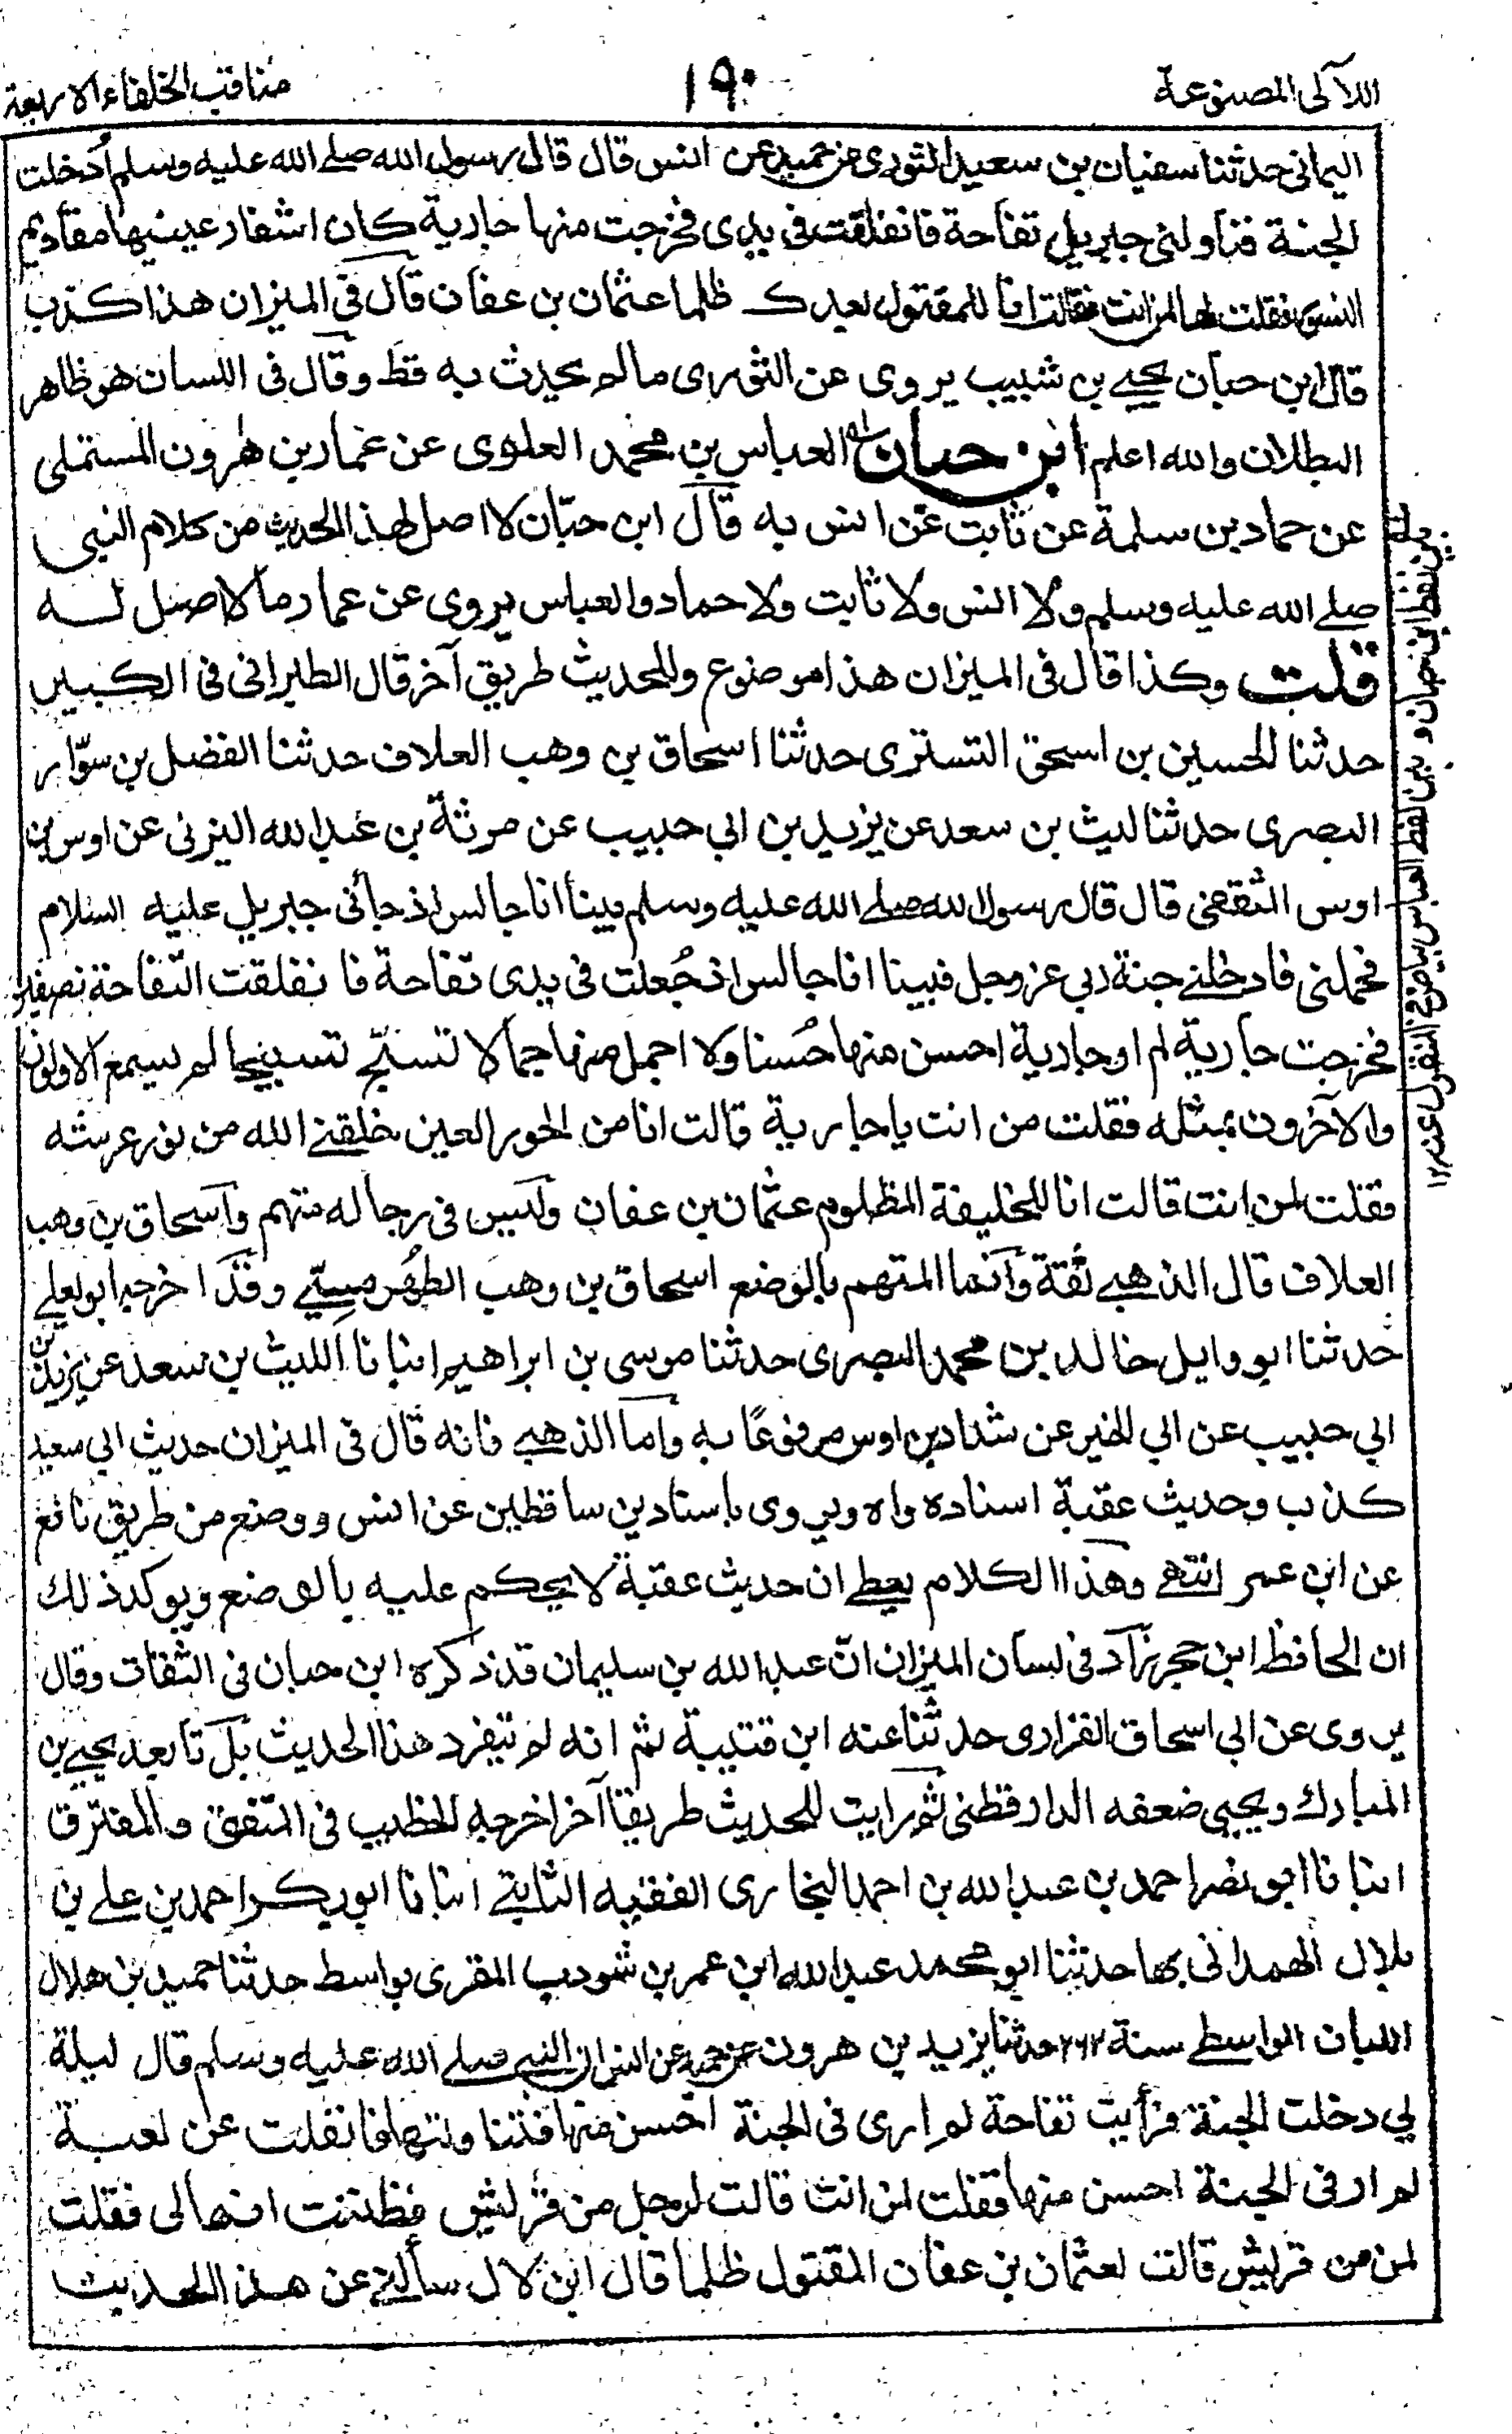 اللآلى المصنوعة
١٩٠
مناقب الخلفاء الاربعة
اليمانى حدثنا سفيان بن سعيد الثورى عن حميد عن انس قال قال رسول الله صلے الله عليه وسلم أدخلت
الجنة فناولنى جبريل تفاحة فانفلقت فى يدى فخرجت منها جارية كان اشفار عينيها مقاديم
النسور فقلت لها لمن انت فقالت انا للمقتول بعدك ظلما عثمان بن عفان قال فى الميزان هذا كذب
قال ابن حبان يحيے بن شبيب يروى عن الثورى مالم يحدث به قط وقال فى اللسان هو ظاهر
البطلان والله اعلم ابن حبان العباس بن محمد العلوى عن عمار بن هرون المستملى
عن حماد بن سلمة عن ثابت عن انس به قال ابن حبّان لا اصل لهذا الحديث من كلام النبى
صلے الله عليه وسلم ولا انس ولا ثابت ولا حماد والعباس يروى عن عمار ما لا اصل له
قلت وكذا قال فى الميزان هذا موضوع وللحديث طريق آخر قال الطبرانى فى الكبير
حدثنا الحسين بن اسحق التسترى حدثنا اسحاق بن وهب العلاف حدثنا الفضل بن سوّار
البصرى حدثنا ليث بن سعد عن يزيد بن ابي حبيب عن مرثة بن عبد الله اليزنى عن اوس بن
اوس الثقفى قال قال رسول الله صلے الله عليه وسلم بينا أنا جالس اذ جأنى جبريل عليه السلام
فحملنى فادخلنے جنة ربي عز وجل فبينا انا جالس اذ جُعلت فى يدى تفاحة فا نفلقت التفاحة نصفين
فخرجت جارية لم ار جارية احسن منها حُسنا ولا اجمل منها جمالا تسبّح تسبيحا لم يسمع الاولون
والآخرون بمثله فقلت من انت يا جارية قالت انا من الحور العين خلقنے الله من نور عرشه
فقلت لمن انت قالت انا للخليفة المظلوم عثمان بن عفان وليس فى رجاله متهم واسحاق بن وهب
العلاف قال الذهبے ثقة وانما المتهم بالوضع اسحاق بن وهب الطهُرمسِيّے وقد اخرجه ابو يعلے
حدثنا ابو وايل خالد بن محمد البصرى حدثنا موسى بن ابراهيم انبا نا الليث بن سعد عن يزيد بن
ابي حبيب عن ابي الخير عن شداد بن اوس مرفوعًا به واما الذهبے فانه قال فى الميزان حديث ابي سعيد
كذب وحديث عقبة اسناده واه ويروى باسنادين ساقطين عن انس ووضع من طريق نافع
عن ابن عمر انتهے وهذا الكلام يعطے ان حديث عقبة لا يحكم عليه بالوضع ويوكد ذلك
ان الحافظ ابن حجر زاد فى لسان الميزان انّ عبد الله بن سليمان قد ذكره ابن حبان فى الثقات وقال
يروى عن ابى اسحاق الفزارى حدثنا عنه ابن قتيبة ثم انه لم تيفرد هذا الحديث بل تابعه يحيے بن
المبارك ويحيى ضعفه الدارقطنى ثم رايت للحديث طريقا آخر اخرجه الخطيب فى المتفق والمفترق
انبا نا ابو نصر احمد بن عبد الله بن احمد البخارى الفقيه الثابتے انبا نا ابو بكر احمد بن علے بن
بلال الهمدانى بها حدثنا ابو محمد عبد الله ابن عمر بن شوذب المقرى بواسط حدثنا حميد بن هلال
اللبان الواسطے سنة ٢٦٢ حدثنا يزيد بن هرون عن حميد عن انس ان النبى صلے الله عليه وسلم قال ليلة
بي دخلت الجنة فرأيت تفاحة لم ارى فى الجنة احسن منها فتنا ولتها فانفلت عن لعبة
لم ار فى الجنة احسن منها فقلت لمن انت قالت لرجل من قريش فظننت انها لى فقلت
لمن من قريش قالت لعثمان بن عفان المقتول ظلما قال ابن لال سألنے عن هذا الحديث
بين لفظ ابن حبان و بين لفظ العباس بياض فى المنقول عنه ١٢